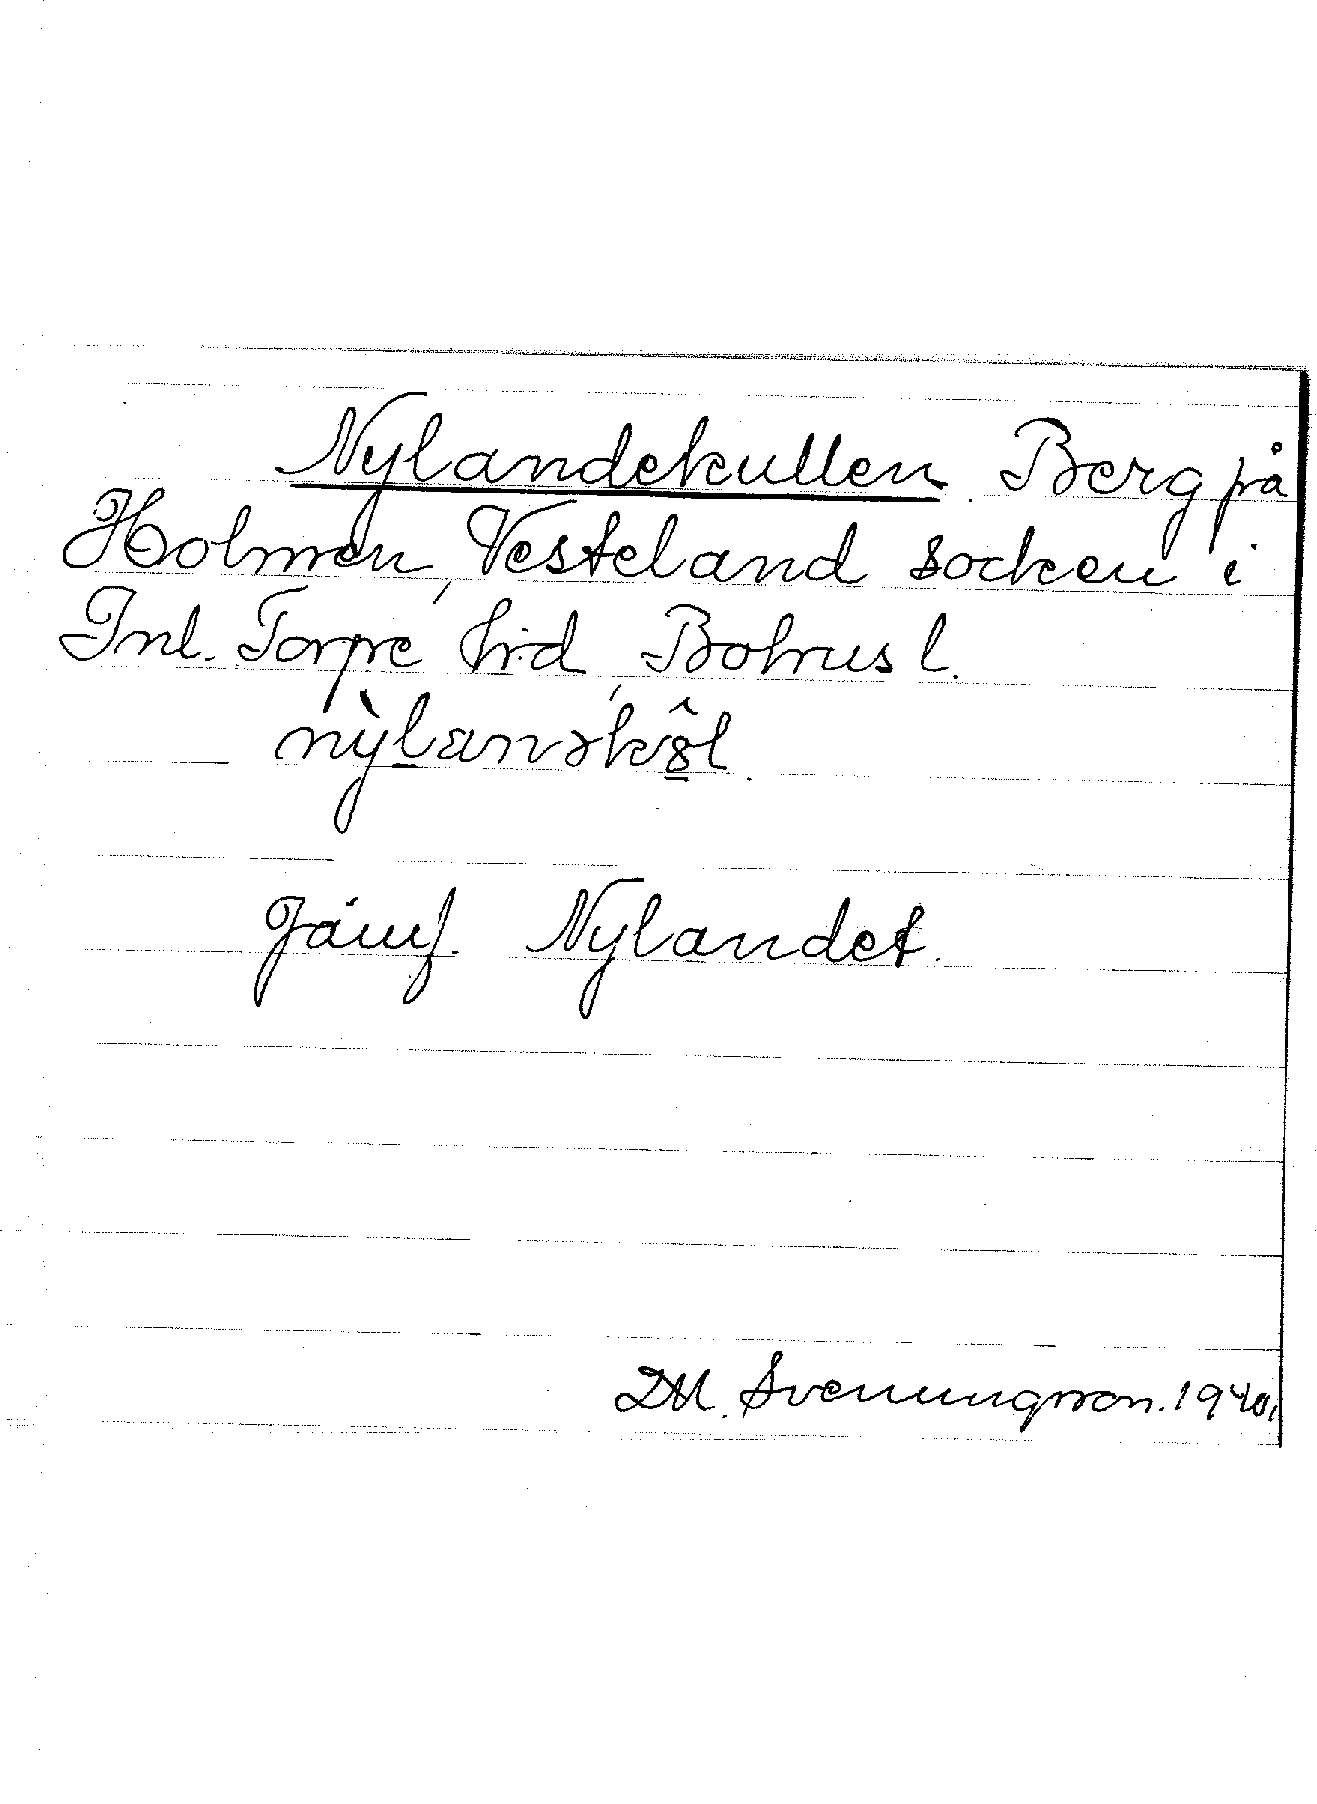 Nylandekullen. Berg på
Holmen, Vesteland socken i
Inl. Torpe hrd, Bohus l.
nỳlanəkŏ̂l.
Jämf. Nylandet.
DM. Svenungsson. 1940.